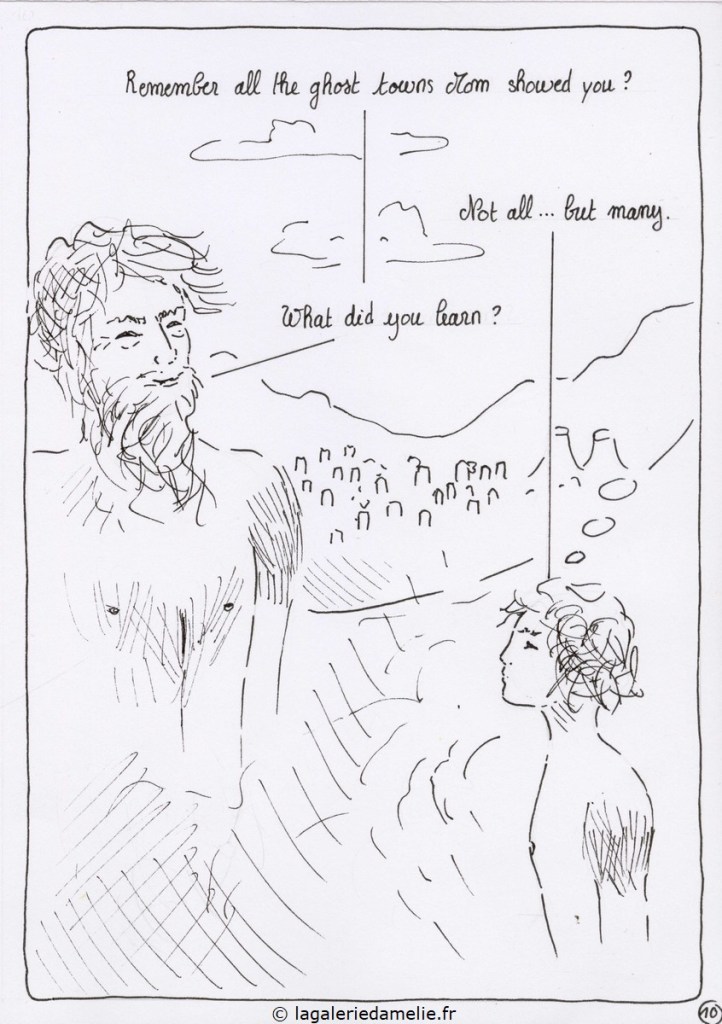 Remember all the ghost towns Mom showed you?
Not all... but many.
What did you learn?
© lagaleriedamelie.fr
10